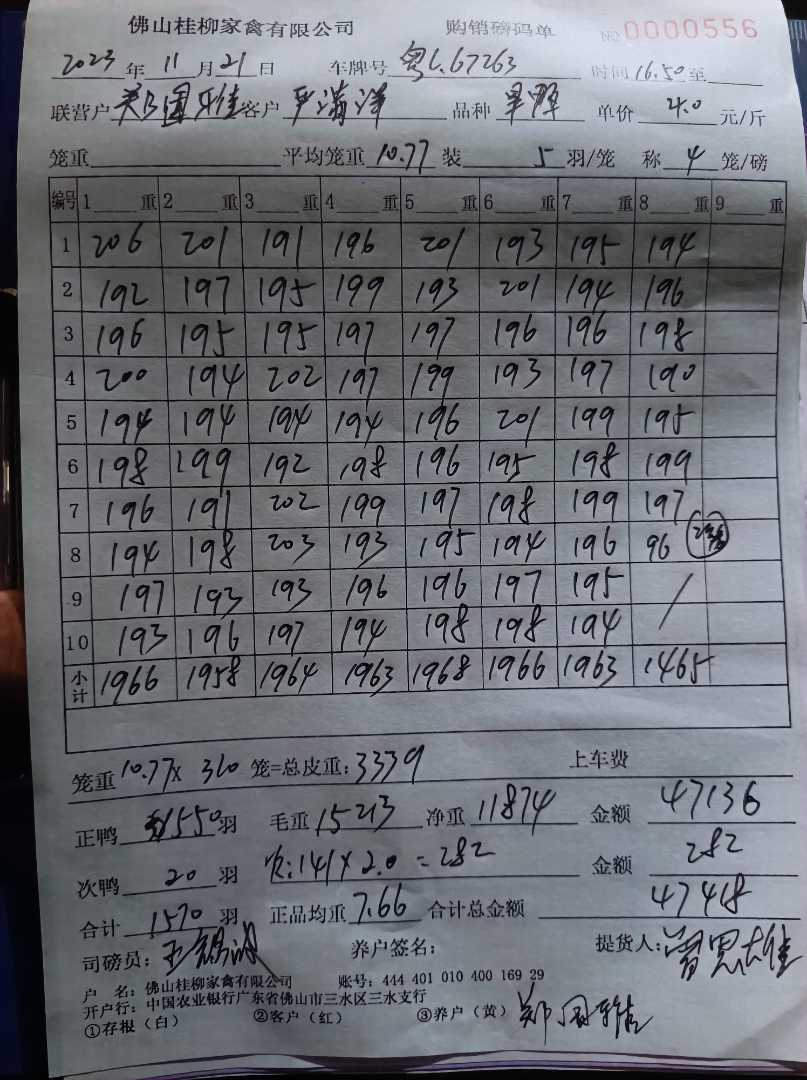 佛山桂柳家禽有限公司 购销磅码单 №0000556
2023年11月21日 车牌号 粤L.67263 时间16.50至
联营户 郑国雅 客户 尹满洋 品种 单价 4.0 元/斤
笼重 平均笼重 10.77 装 5 羽/笼 称 4 笼/磅
编号 1 重 2 重 3 重 4 重 5 重 6 重 7 重 8 重 9 重
1 206 201 191 196 201 193 195 194
2 192 197 195 199 193 201 194 196
3 196 195 195 197 197 196 196 198
4 200 194 202 197 199 193 197 190
5 194 194 194 194 196 201 199 195
6 198 199 192 198 196 195 198 199
7 196 191 202 199 197 198 199 197
8 194 198 203 193 195 194 196 96
9 197 193 193 196 196 197 195 /
10 193 196 197 194 198 198 194
小计 1966 1958 1964 1963 1968 1966 1963 1465
笼重 10.77x 310 笼=总皮重:3339 上车费
正鸭 1550羽 毛重 15213 净重 11874 金额 47136
次鸭 20 羽 次:141×2.0=282 金额 282
合计 1570 羽 正品均重 7.66 合计总金额 47418
司磅员: 养户签名: 提货人:
户 名:佛山桂柳家禽有限公司 账号:444 401 010 400 169 29
开户行:中国农业银行广东省佛山市三水区三水支行
①存根(白) ②客户(红) ③养户(黄) 郑国雅